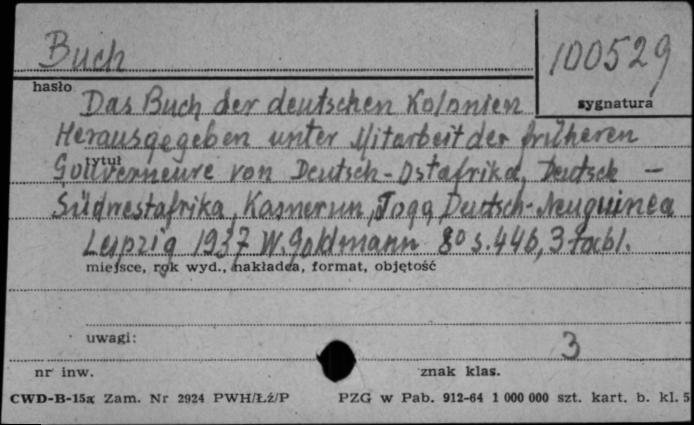 Buch
100529
hasło
sygnatura
Das Buch der deutschen Kolonien
Herausgegeben unter Mitarbeit der früheren
tytuł
Gouverneure von Deutsch-Ostafrika, Deutsch-
Südwestafrika, Kamerun, Togo, Deutsch-Neuguinea
Leipzig 1937 W. Goldmann 8º s. 446, 3 tabl.
miejsce, rok wyd., nakładca, format, objętość
uwagi:
3
nr inw.
znak klas.
CWD-B-15a Zam. Nr 2924 PWH/Łź/P PZG w Pab. 912-64 1 000 000 szt. kart. b. kl. 5